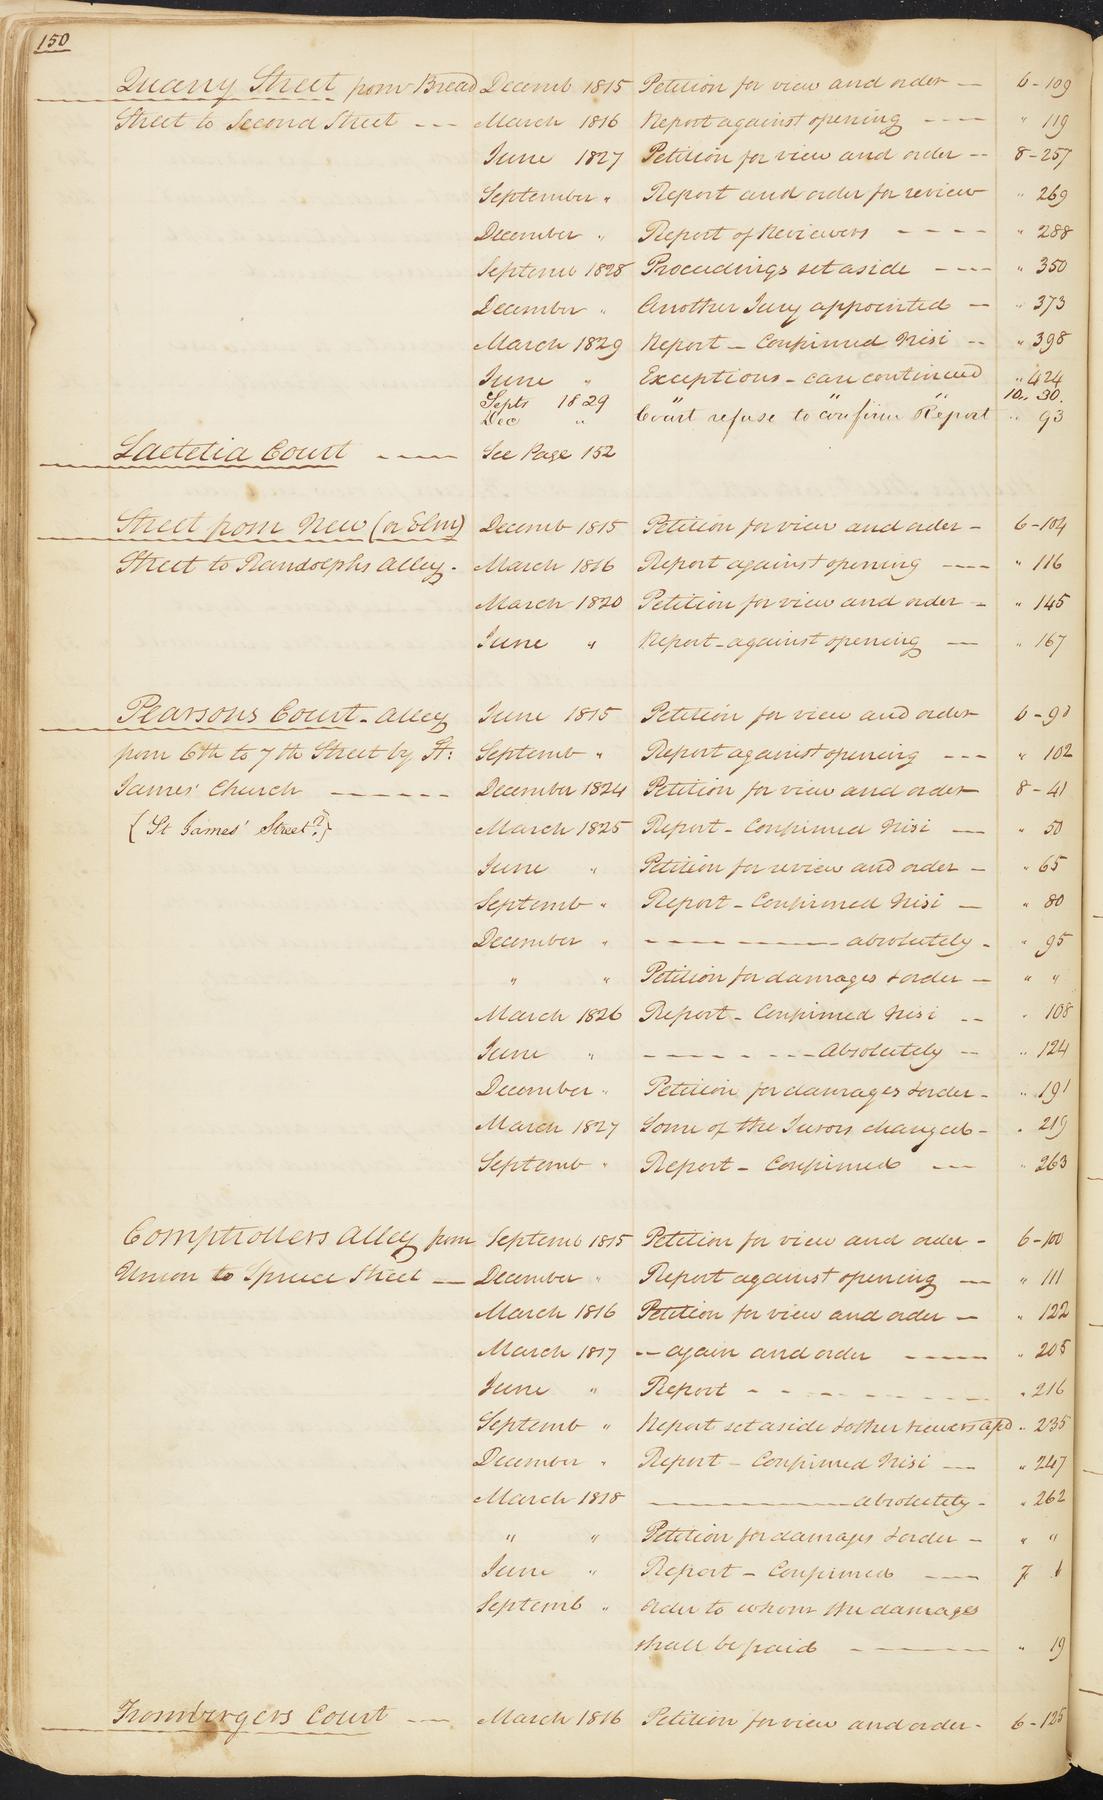 150
Quarry Street from Bread Decemb 1815 Petition for view and order — 6-109
Street to Second Street --- March 1816 Report against opening ---- " 119
June 1827 Petition for view and order -- 8-257
September " Report and order for review " 269
December " Report of Reviewers ---- " 288
Septemb 1828 Proceedings set aside ---- " 350
December " Another Jury appointed — " 373
March 1829 Report — Confirmed Nisi -- " 398
June " Exceptions - case continued " 424
Septr 1829 " " " 10 " 30.
Dec " Court refuse to confirm Report " 93
Laetitia Court ---- See Page 152
Street from New (or Elm) Decemb 1815 Petition for view and order - 6-104
Street to Randolphs Alley - March 1816 Report against opening ---- " 116
March 1820 Petition for view and order - " 145
June " Report - against opening --- " 167
Pearsons Court - alley June 1815 Petition for view and order 6-93
from 6th to 7th Street by St: Septemb " Report against opening --- " 102
James' Church ------ December 1824 Petition for view and order 8-41
{St James' Street?} March 1825 Report - Confirmed Nisi --- " 50
June " Petition for review and order - " 65
Septemb " Report - Confirmed Nisi — " 80
December " -------- absolutely - " 95
" " Petition for damages & order — " "
March 1826 Report - Confirmed Nisi -- " 108
June " ------- Absolutely -- " 124
December " Petition for damages & order - " 191
March 1827 Some of the Jurors changed - " 219
Septemb " Report - Confirmed --- " 263
Comptrollers Alley from Septemb 1815 Petition for view and order - 6-100
Union to Spruce Street — December " Report against opening — " 111
March 1816 Petition for view and order — " 122
March 1817 -- again and order ----- " 205
June " Report - - - - - - - - " 216
Septemb " Report set aside & other viewers apd " 235
December " Report - Confirmed Nisi --- " 247
March 1818 -------- absolutely - " 262
" " Petition for damages & order — " "
June " Report - Confirmed ---- 7 1
Septemb " Order to whom the damages
shall be paid ------- " 19
Trombergers Court --- March 1816 Petition for view and order - 6-125